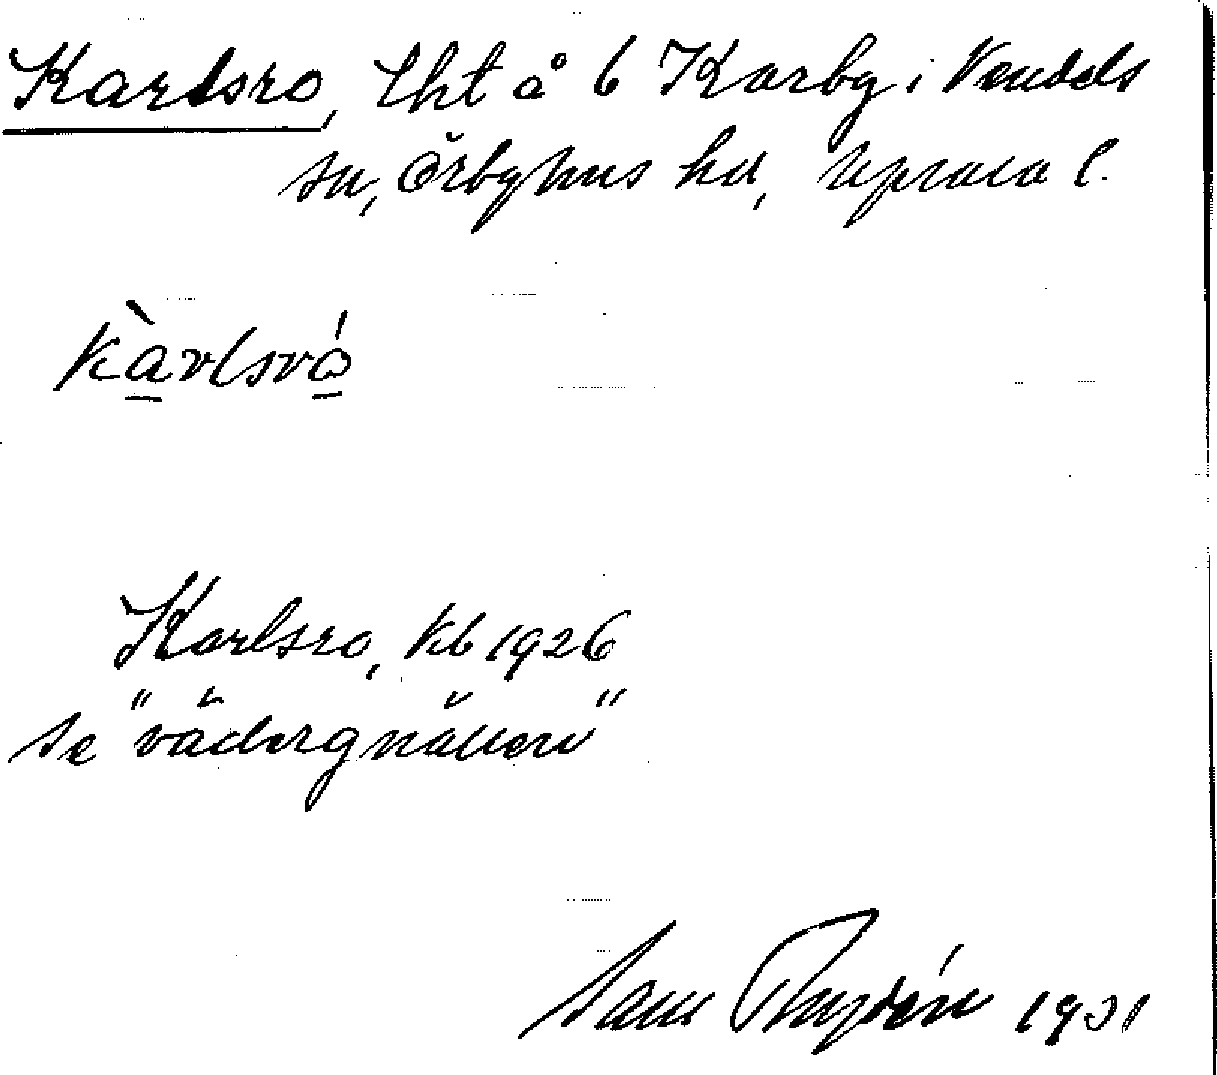 Karlsro, lht å 6 Karby i Vendels
sn, Örbyhus hd, Uppsala l.
kàrlsró
Karlsro, kb 1926
se "vädergnällen"
Sam Rydén 1931